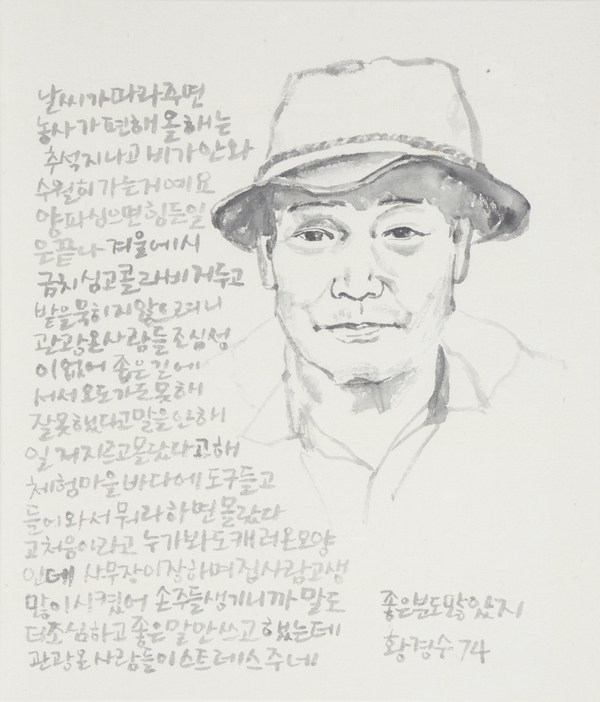 날씨가 따라주면
농사가 편해 올해는
추석지나고 비가 안와
수월히 가는거예요
양파심으면 힘든일
은끝나 겨울에시
금치심고 콜라비거두고
밭을묵히지않으려니
관광온사람들 조심성
이없어 좁은길에
서서 오도가도못해
잘못했다고말을안해
일 저지르고몰랐다고해
체험마을 바다에 도구들고
들어와서 뭐라하면 몰랐다
고처음이라고 누가봐도캐러온모양
인데 사무장이장하며집사람고생
많이시켰어 손주들생기니까 말도
더조심하고 좋은말만쓰고했는데
관광온사람들이스트레스주네
좋은분도많았지
황경수 74